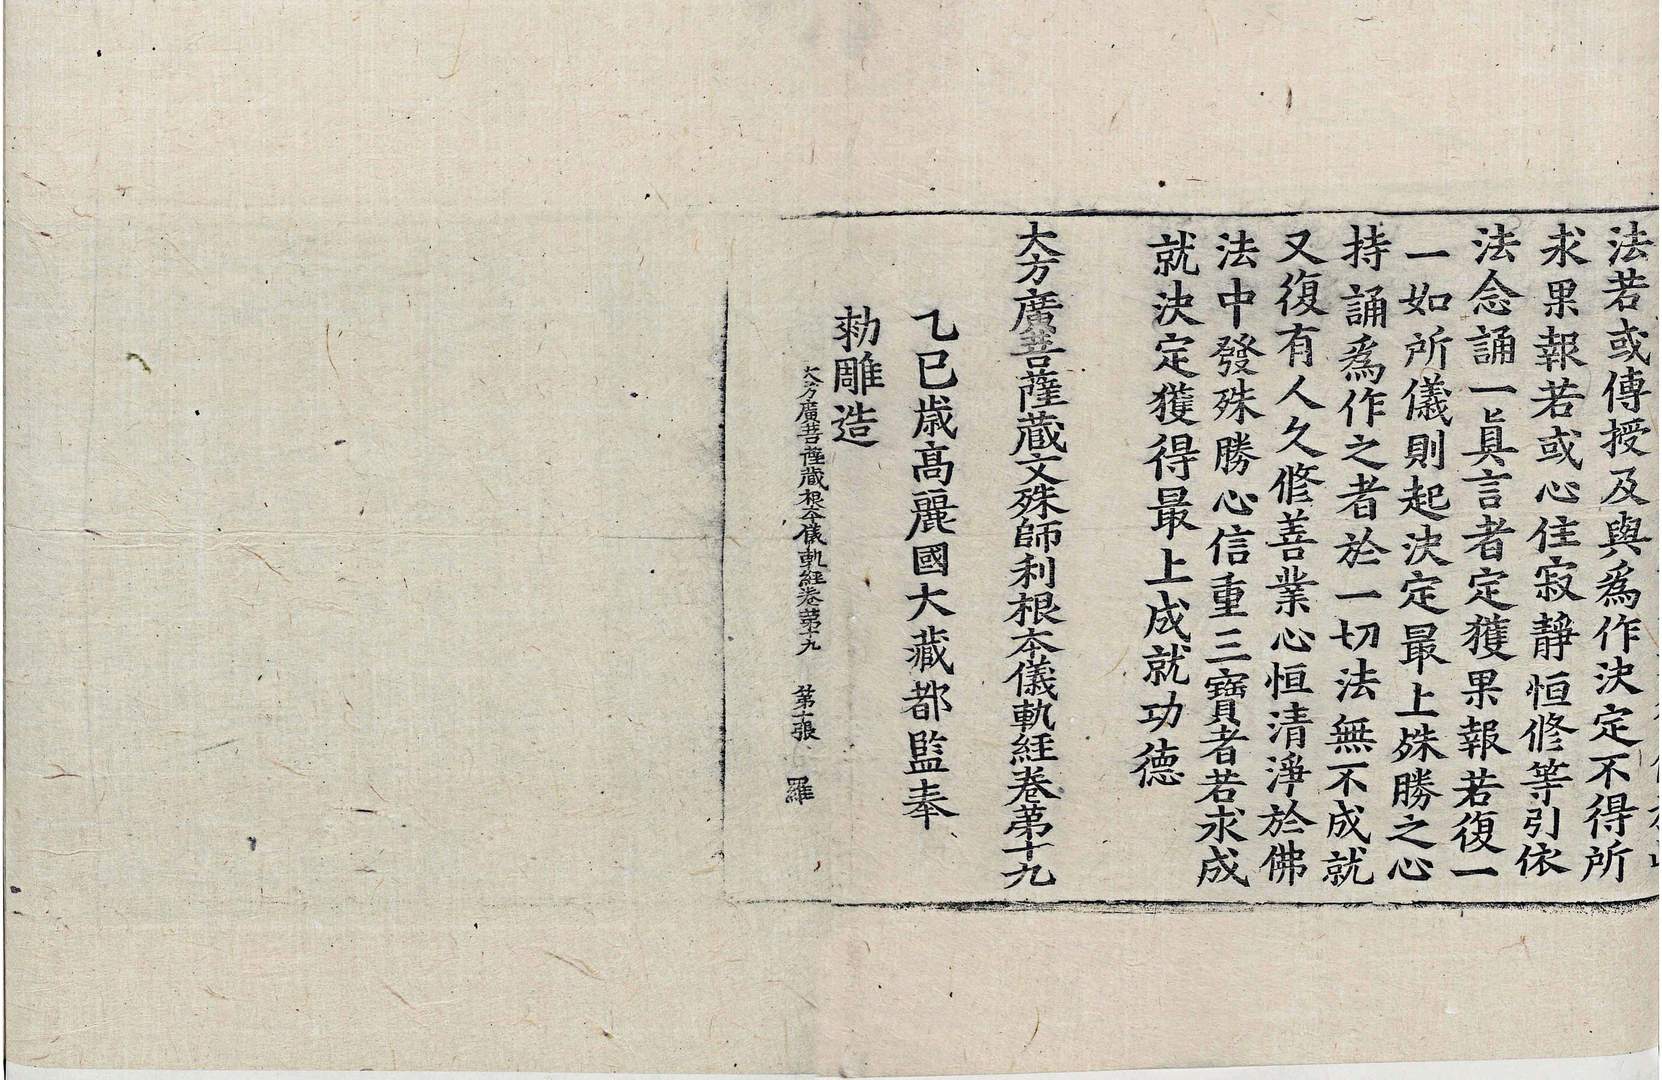 法若或傳授及與爲作決定不得所
求果報若或心住寂靜恒修等引依
法念誦一眞言者定獲果報若復一
一如所儀則起決定最上殊勝之心
持誦爲作之者於一切法無不成就
又復有人久修善業心恒清淨於佛
法中發殊勝心信重三寶者若求成
就決定獲得最上成就功德
大方廣菩薩藏文殊師利根本儀軌經卷第十九
乙巳歳高麗國大藏都監奉
勅雕造
大方廣菩薩藏根本儀軌經卷第十九 第十張 羅